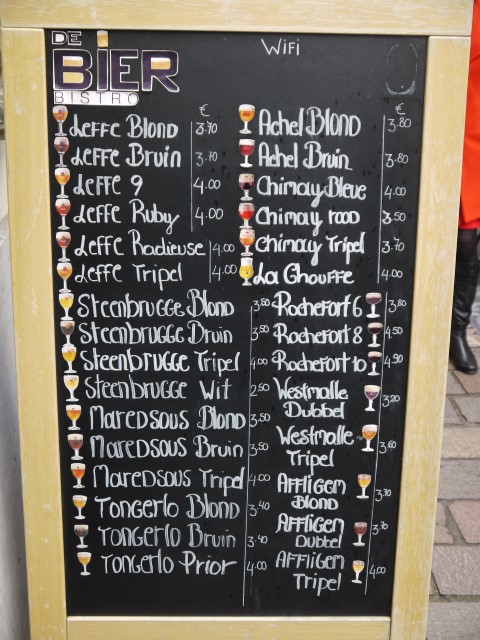 DE
BIER
BISTRO
WiFi
€
Leffe Blond 3.70
Leffe Bruin 3.70
Leffe 9 4.00
Leffe Ruby 4.00
Leffe Radieuse 4.00
Leffe Tripel 4.00
Steenbrugge Blond 3.50
Steenbrugge Bruin 3.50
Steenbrugge Tripel 4.00
Steenbrugge Wit 2.50
Maredsous Blond 3.50
Maredsous Bruin 3.50
Maredsous Tripel 4.00
Tongerlo Blond 3.40
Tongerlo Bruin 3.40
Tongerlo Prior 4.00
€
Achel Blond 3.80
Achel Bruin 3.80
Chimay Bleue 4.00
Chimay rood 3.50
Chimay Tripel 3.70
La Chouffe 4.00
Rochefort 6 3.80
Rochefort 8 4.50
Rochefort 10 4.90
Westmalle 3.20
Dubbel
Westmalle 3.60
Tripel
Affligem 3.30
Blond
Affligem 3.30
Dubbel
Affligem 4.00
Tripel